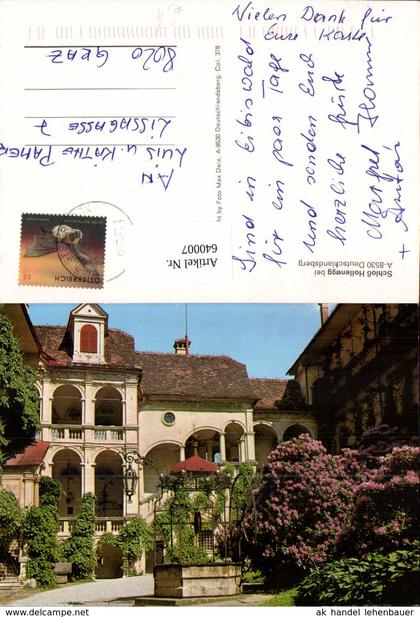 Vielen Dank für
Eure Karte
Sind in Eibiswald
für ein paar Tage
und senden Euch
herzliche Grüße
Margret
+ Anton
AN
LUIS u. KÄTHE
LISSAGASSE 7
8020 GRAZ
ht by Foto Max Deix, A-8530 Deutschlandsberg, Col. 378
Schloß Hollenegg bei
A-8530 Deutschlandsberg
Artikel Nr.
640007
55
ÖSTERREICH
www.ansichtskarten-lehenbauer.at
ak handel lehenbauer